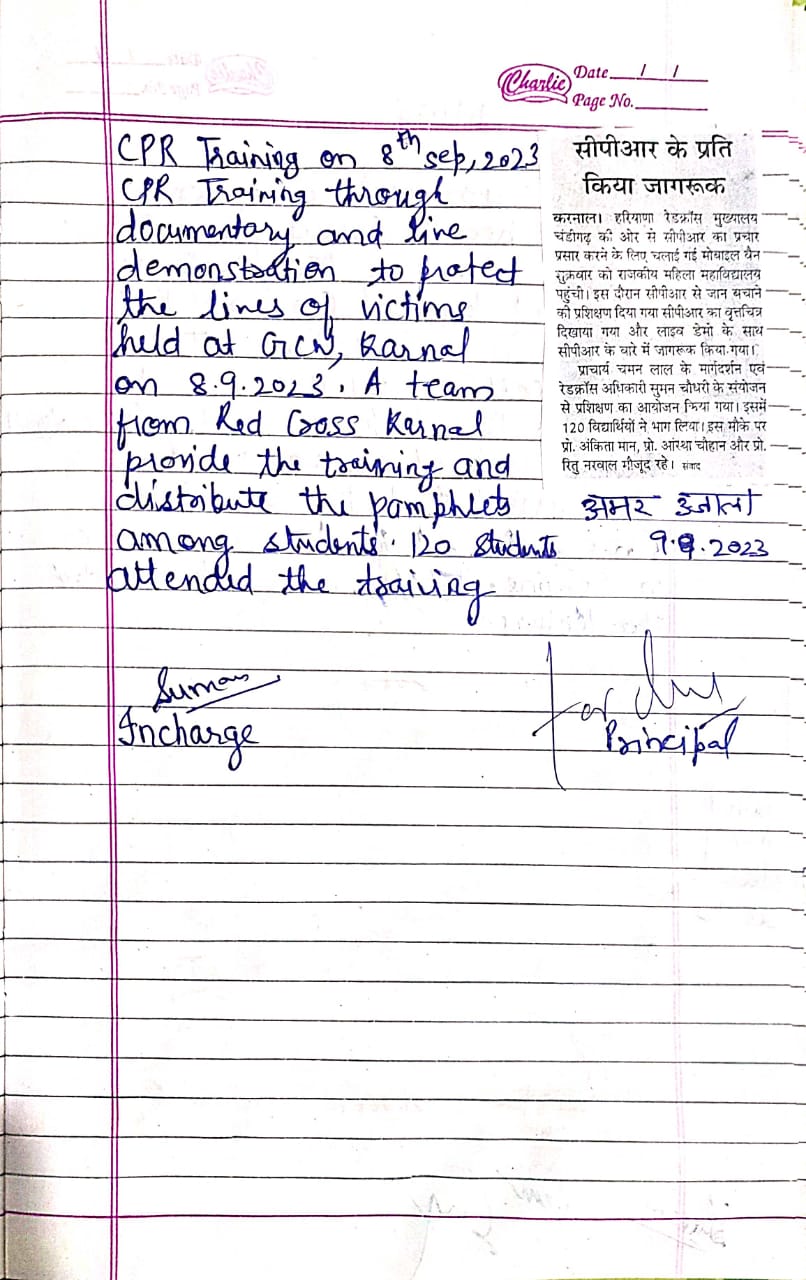 Charlie
Date / /
Page No.
CPR Training on 8th sep, 2023
CPR Training through
documentary and live
demonstration to protect
the lives of victims
held at GCW, Karnal
on 8.9.2023. A team
from Red Cross Karnal
provide the training and
distribute the pamphlets
among students. 120 students
attended the training
सीपीआर के प्रति
किया जागरूक
करनाल। हरियाणा रेडक्रॉस मुख्यालय
चंडीगढ़ की ओर से सीपीआर का प्रचार
प्रसार करने के लिए चलाई गई मोबाइल वैन
शुक्रवार को राजकीय महिला महाविद्यालय
पहुंची। इस दौरान सीपीआर से जान बचाने
की प्रशिक्षण दिया गया सीपीआर का वृत्तचित्र
दिखाया गया और लाइव डेमो के साथ
सीपीआर के बारे में जागरूक किया गया।
प्राचार्य चमन लाल के मार्गदर्शन एवं
रेडक्रॉस अधिकारी सुमन चौधरी के संयोजन
से प्रशिक्षण का आयोजन किया गया। इसमें
120 विद्यार्थियों ने भाग लिया। इस मौके पर
प्रो. अंकिता मान, प्रो. आस्था चौहान और प्रो.
रितु नरवाल मौजूद रहे। संवाद
अमर उजाला
9.9.2023
Suman
Incharge
for
Principal